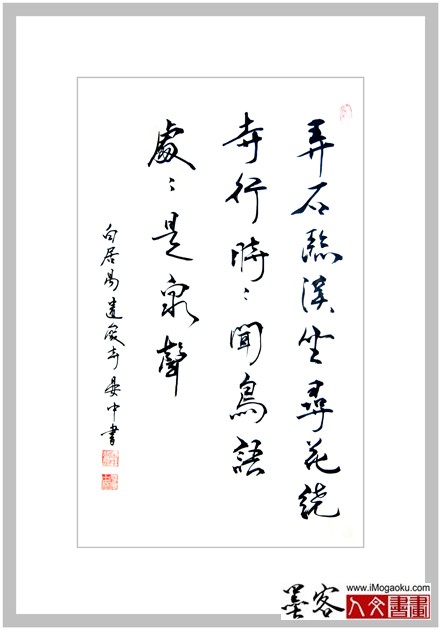 弄石臨溪坐尋花繞
寺行時〻聞鳥語
處〻是泉聲
白居易遺愛寺晏中書
墨客
www.iMogaoku.com
人文書畫